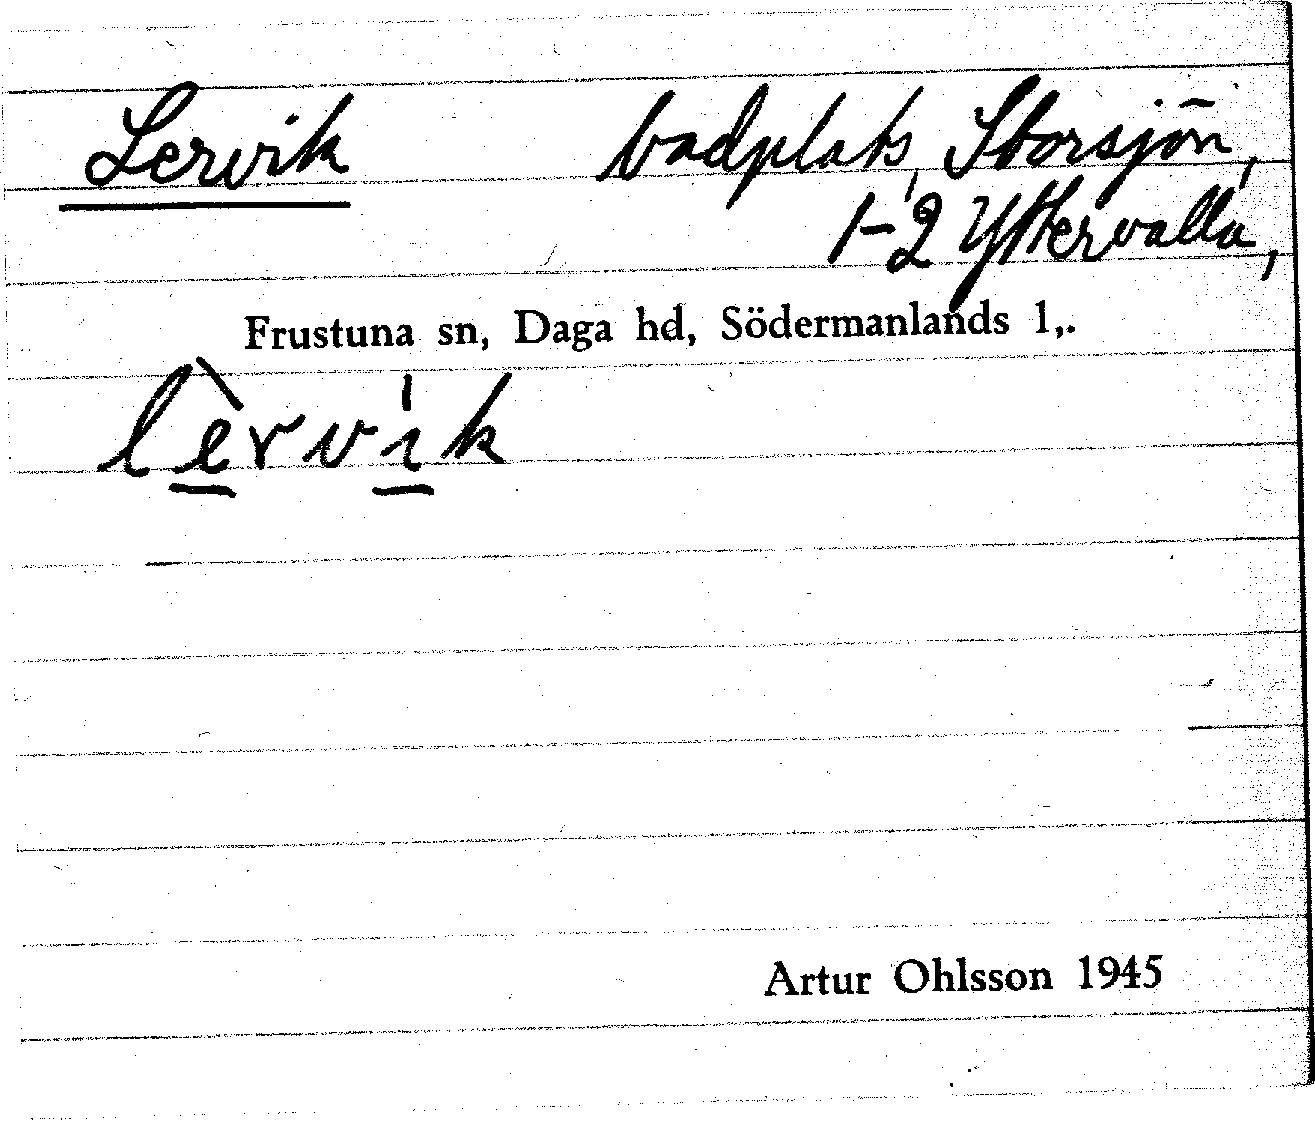 Lervik badplats, Storsjön,
1-2 Yttervalla,
Frustuna sn, Daga hd, Södermanlands l,.
lèrvík
Artur Ohlsson 1945